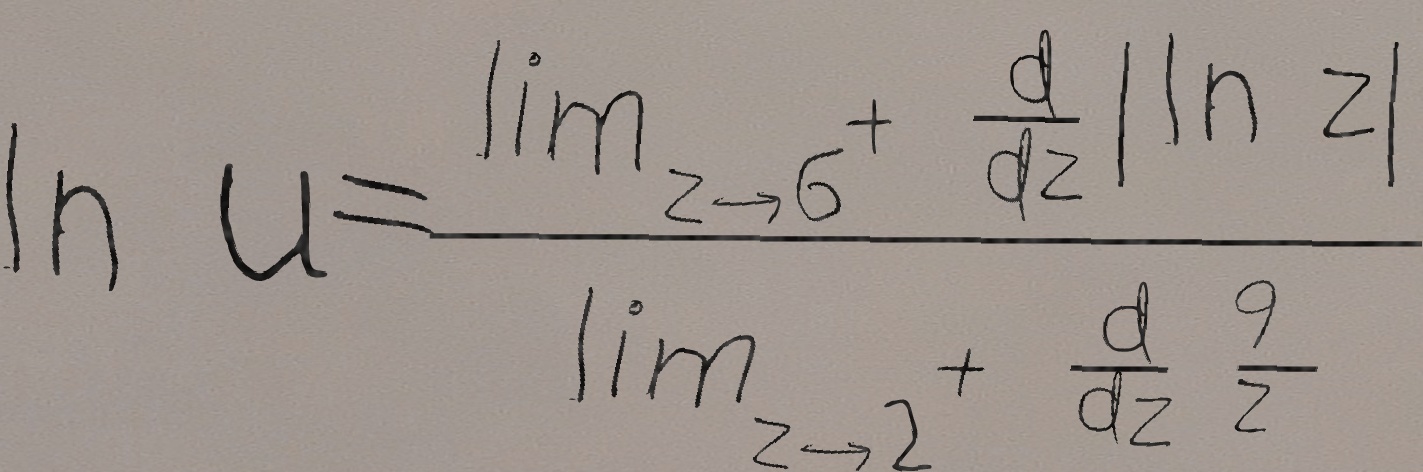 \ln u = \frac{\lim_{z \to 6^+} \frac{d}{dz} |\ln z|}{\lim_{z \to 2^+} \frac{d}{dz} \frac{9}{z}}